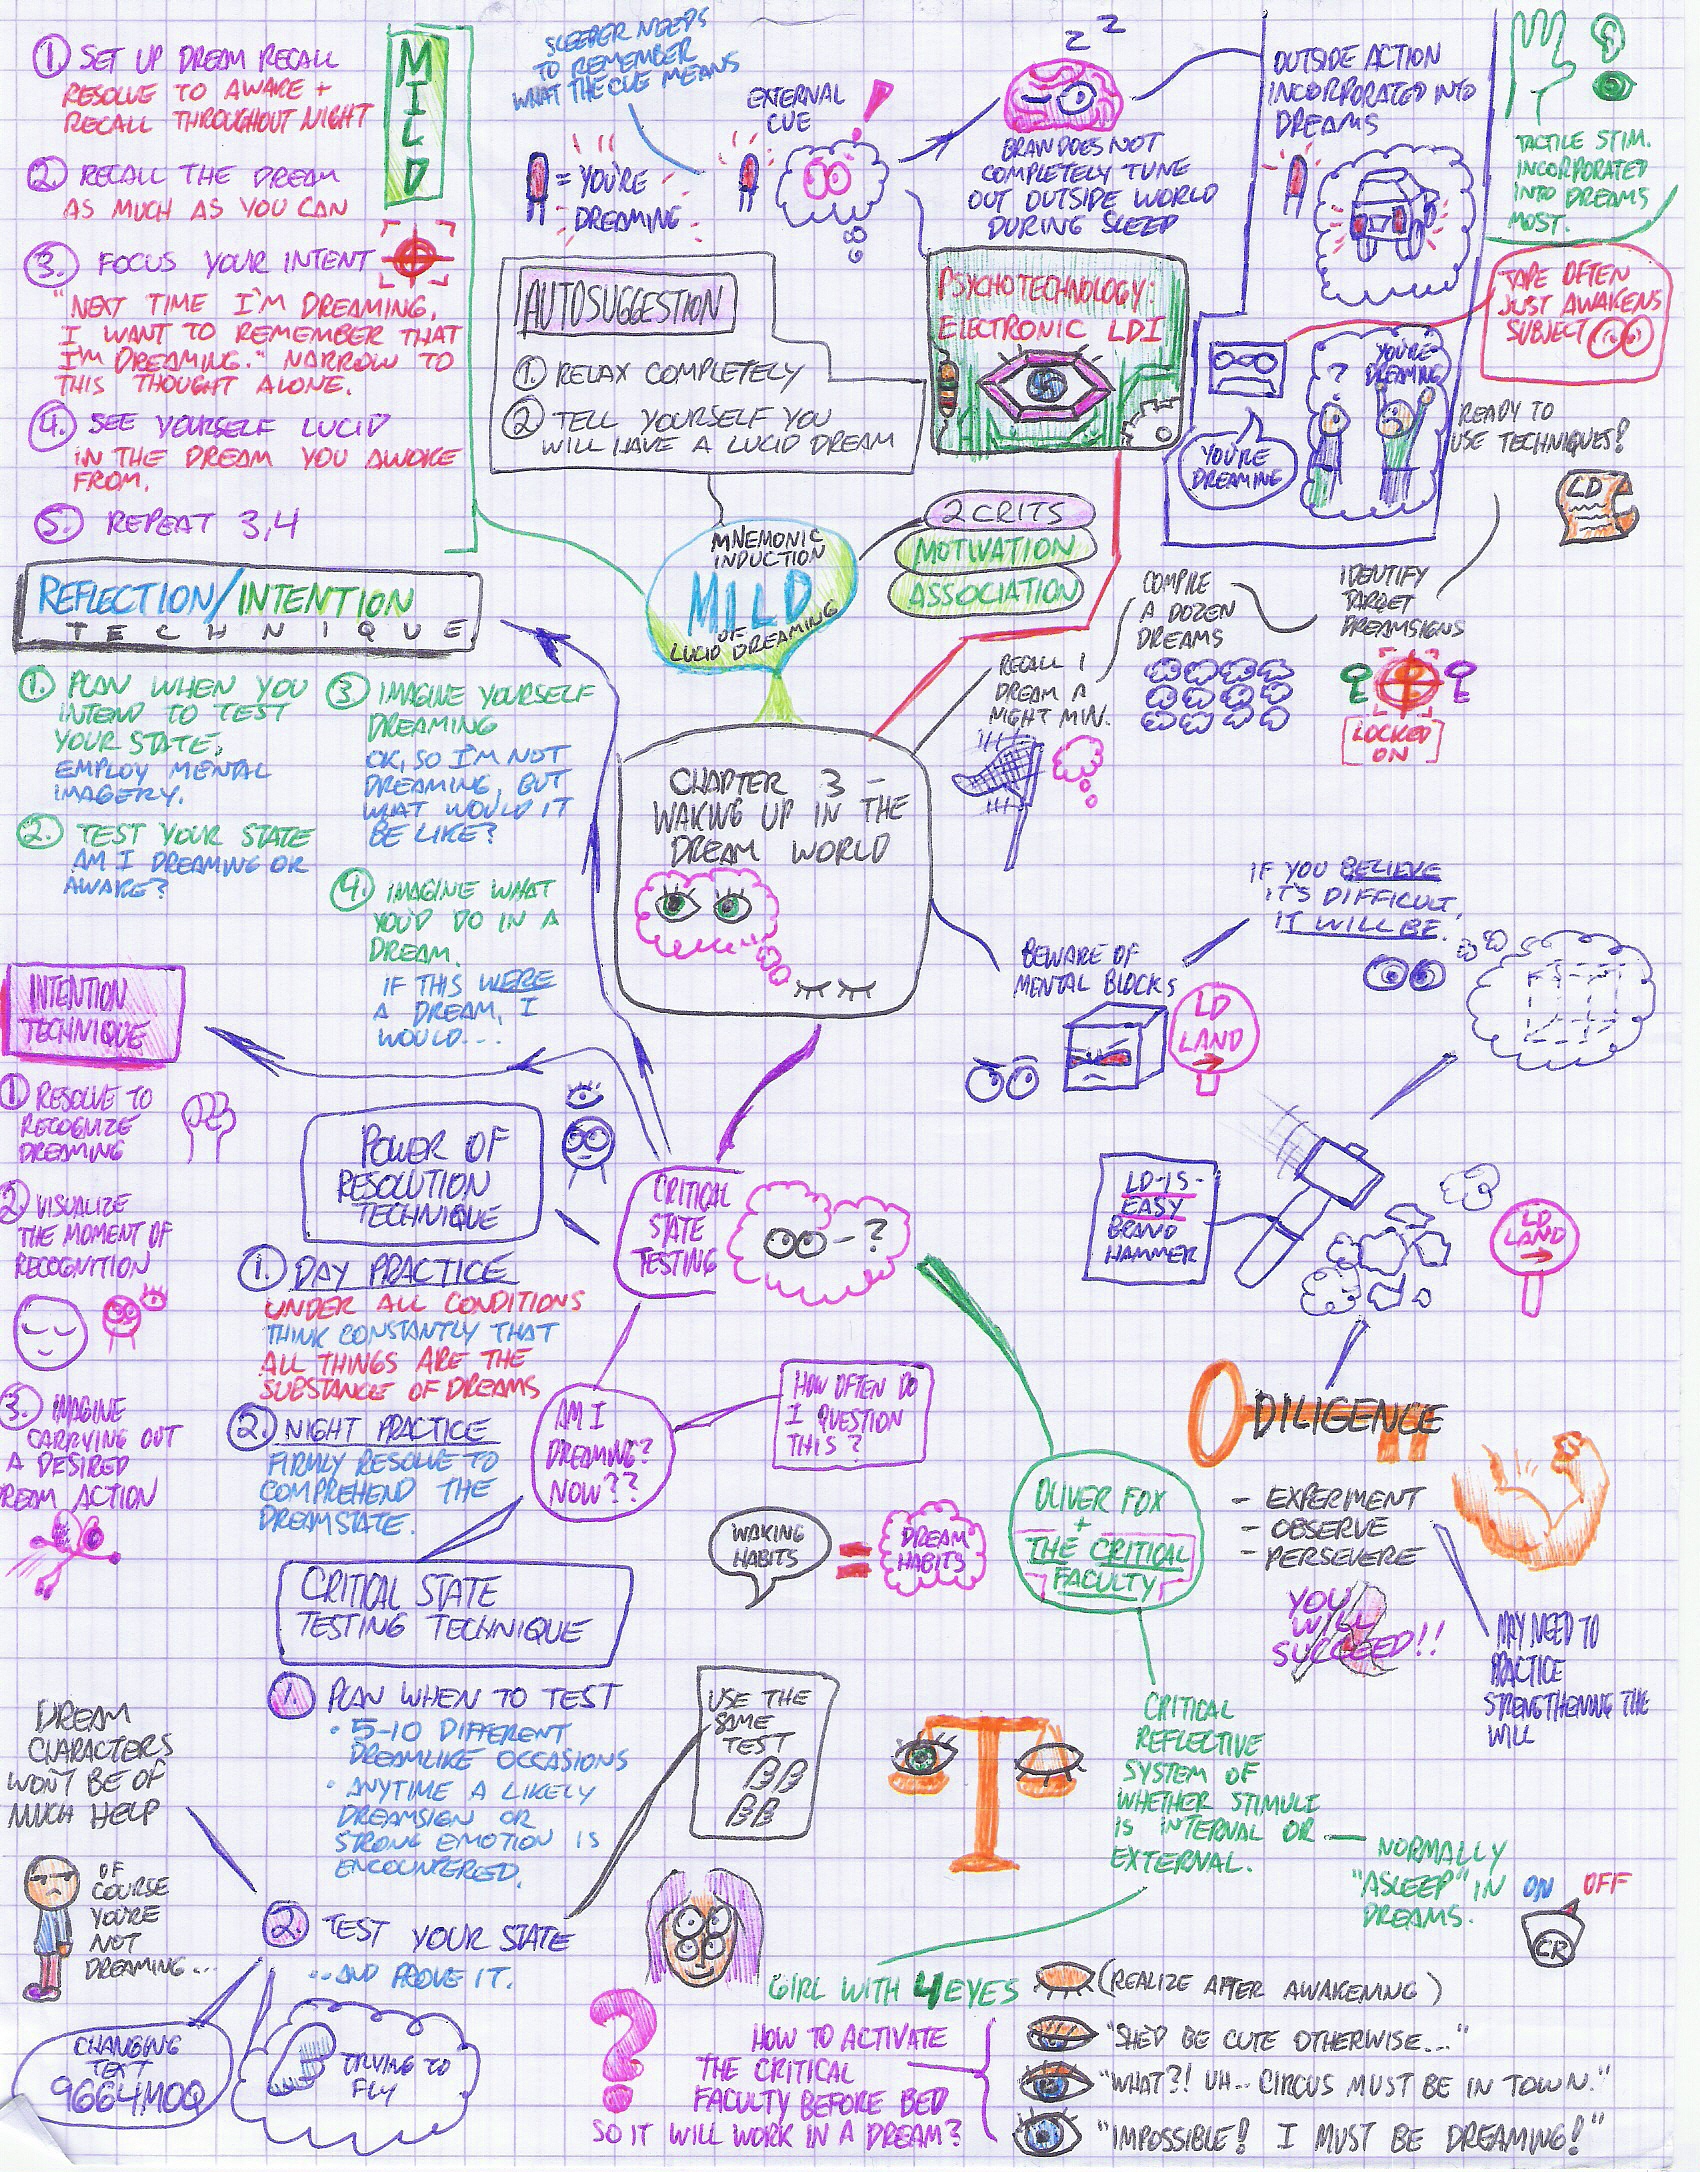 MILD
1. SET UP DREAM RECALL
RESOLVE TO AWAKE +
RECALL THROUGHOUT NIGHT
2. RECALL THE DREAM
AS MUCH AS YOU CAN
3. FOCUS YOUR INTENT
"NEXT TIME I'M DREAMING,
I WANT TO REMEMBER THAT
I'M DREAMING." NARROW TO
THIS THOUGHT ALONE.
4. SEE YOURSELF LUCID
IN THE DREAM YOU AWOKE
FROM.
5. REPEAT 3,4
SLEEPER NEEDS
TO REMEMBER
WHAT THE CUE MEANS
= YOU'RE
DREAMING
EXTERNAL
CUE
!
Z Z
BRAIN DOES NOT
COMPLETELY TUNE
OUT OUTSIDE WORLD
DURING SLEEP
OUTSIDE ACTION
INCORPORATED INTO
DREAMS
TACTILE STIM.
INCORPORATED
INTO DREAMS
MOST.
TAPE OFTEN
JUST AWAKENS
SUBJECT
YOU'RE
DREAMING
?
YOU'RE
DREAMING
PSYCHOTECHNOLOGY:
ELECTRONIC LDI
AUTOSUGGESTION
1 RELAX COMPLETELY
2 TELL YOURSELF YOU
WILL HAVE A LUCID DREAM
MNEMONIC
INDUCTION
MILD
OF
LUCID DREAMING
2 CRITS
MOTIVATION
ASSOCIATION
READY TO
USE TECHNIQUES!
LD
COMPILE
A DOZEN
DREAMS
IDENTIFY
TARGET
DREAMSIGNS
LOCKED
ON
RECALL 1
DREAM A
NIGHT MIN.
REFLECTION/INTENTION
TECHNIQUE
1. PLAN WHEN YOU
INTEND TO TEST
YOUR STATE,
EMPLOY MENTAL
IMAGERY.
2. TEST YOUR STATE
AM I DREAMING OR
AWAKE?
3 IMAGINE YOURSELF
DREAMING
OK, SO I'M NOT
DREAMING, BUT
WHAT WOULD IT
BE LIKE?
4. IMAGINE WHAT
YOU'D DO IN A
DREAM.
IF THIS WERE
A DREAM, I
WOULD...
CHAPTER 3 -
WAKING UP IN THE
DREAM WORLD
BEWARE OF
MENTAL BLOCKS
IF YOU BELIEVE
IT'S DIFFICULT,
IT WILL BE.
LD
LAND
LD-IS-
EASY
BRAND
HAMMER
LD
LAND
DILIGENCE
- EXPERIMENT
- OBSERVE
- PERSEVERE
YOU
WILL
SUCCEED!!
MAY NEED TO
PRACTICE
STRENGTHENING THE
WILL
INTENTION
TECHNIQUE
1 RESOLVE TO
RECOGNIZE
DREAMING
2 VISUALIZE
THE MOMENT OF
RECOGNITION
3. IMAGINE
CARRYING OUT
A DESIRED
DREAM ACTION
POWER OF
RESOLUTION
TECHNIQUE
1. DAY PRACTICE
UNDER ALL CONDITIONS
THINK CONSTANTLY THAT
ALL THINGS ARE THE
SUBSTANCE OF DREAMS
2. NIGHT PRACTICE
FIRMLY RESOLVE TO
COMPREHEND THE
DREAMSTATE.
CRITICAL
STATE
TESTING
- ?
AM I
DREAMING?
NOW??
HOW OFTEN DO
I QUESTION
THIS?
WAKING
HABITS
=
DREAM
HABITS
OLIVER FOX
+
THE CRITICAL
FACULTY
CRITICAL
REFLECTIVE
SYSTEM OF
WHETHER STIMULI
IS INTERNAL OR
EXTERNAL.
NORMALLY
"ASLEEP" IN
DREAMS.
ON OFF
CR
CRITICAL STATE
TESTING TECHNIQUE
1. PLAN WHEN TO TEST
• 5-10 DIFFERENT
DREAMLIKE OCCASIONS
• ANYTIME A LIKELY
DREAMSIGN OR
STRONG EMOTION IS
ENCOUNTERED.
2. TEST YOUR STATE
...AND PROVE IT.
USE THE
SAME
TEST
DREAM
CHARACTERS
WON'T BE OF
MUCH HELP
OF
COURSE
YOU'RE
NOT
DREAMING...
CHANGING
TEXT
9664MOQ
TRYING TO
FLY
GIRL WITH 4 EYES
(REALIZE AFTER AWAKENING)
"SHE'D BE CUTE OTHERWISE..."
"WHAT?! UH... CIRCUS MUST BE IN TOWN."
"IMPOSSIBLE! I MUST BE DREAMING!"
?
HOW TO ACTIVATE
THE CRITICAL
FACULTY BEFORE BED
SO IT WILL WORK IN A DREAM?